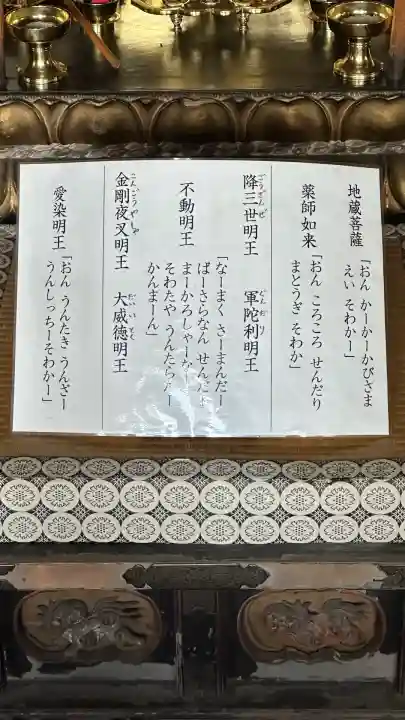 地蔵菩薩
「おん かーかーかびざま
えい そわかー」
薬師如来
「おん ころころ せんだり
まとうぎ そわか」
降三世明王 軍陀利明王
ごうざんぜ
不動明王
「なーまく さーまんだー
ばーさらなん せんだ
まーかろしゃー
そわたや うんたらたー
かんまーん」
金剛夜叉明王 大威徳明王
こんごうやしゃ
愛染明王
「おん うんたき うんざー
うんしっちーそわかー」